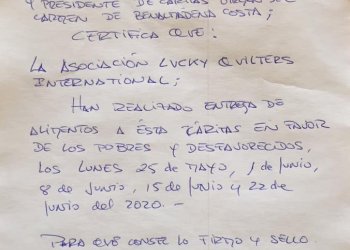 Y PRESIDENTE DE CÁRITAS VIRGEN DEL
CARMEN DE BENALMADENA COSTA;
CERTIFICA QUE:
LA ASOCIACIÓN LUCKY QUILTERS
INTERNATIONAL;
HAN REALIZADO ENTREGA DE
ALIMENTOS A ÉSTA CÁRITAS EN FAVOR
DE LOS POBRES Y DESFAVORECIDOS,
LOS LUNES 25 DE MAYO, 1 DE JUNIO,
8 DE JUNIO, 15 DE JUNIO Y 22 DE
JUNIO DEL 2020. -
PARA QUE CONSTE LO FIRMO Y SELLO